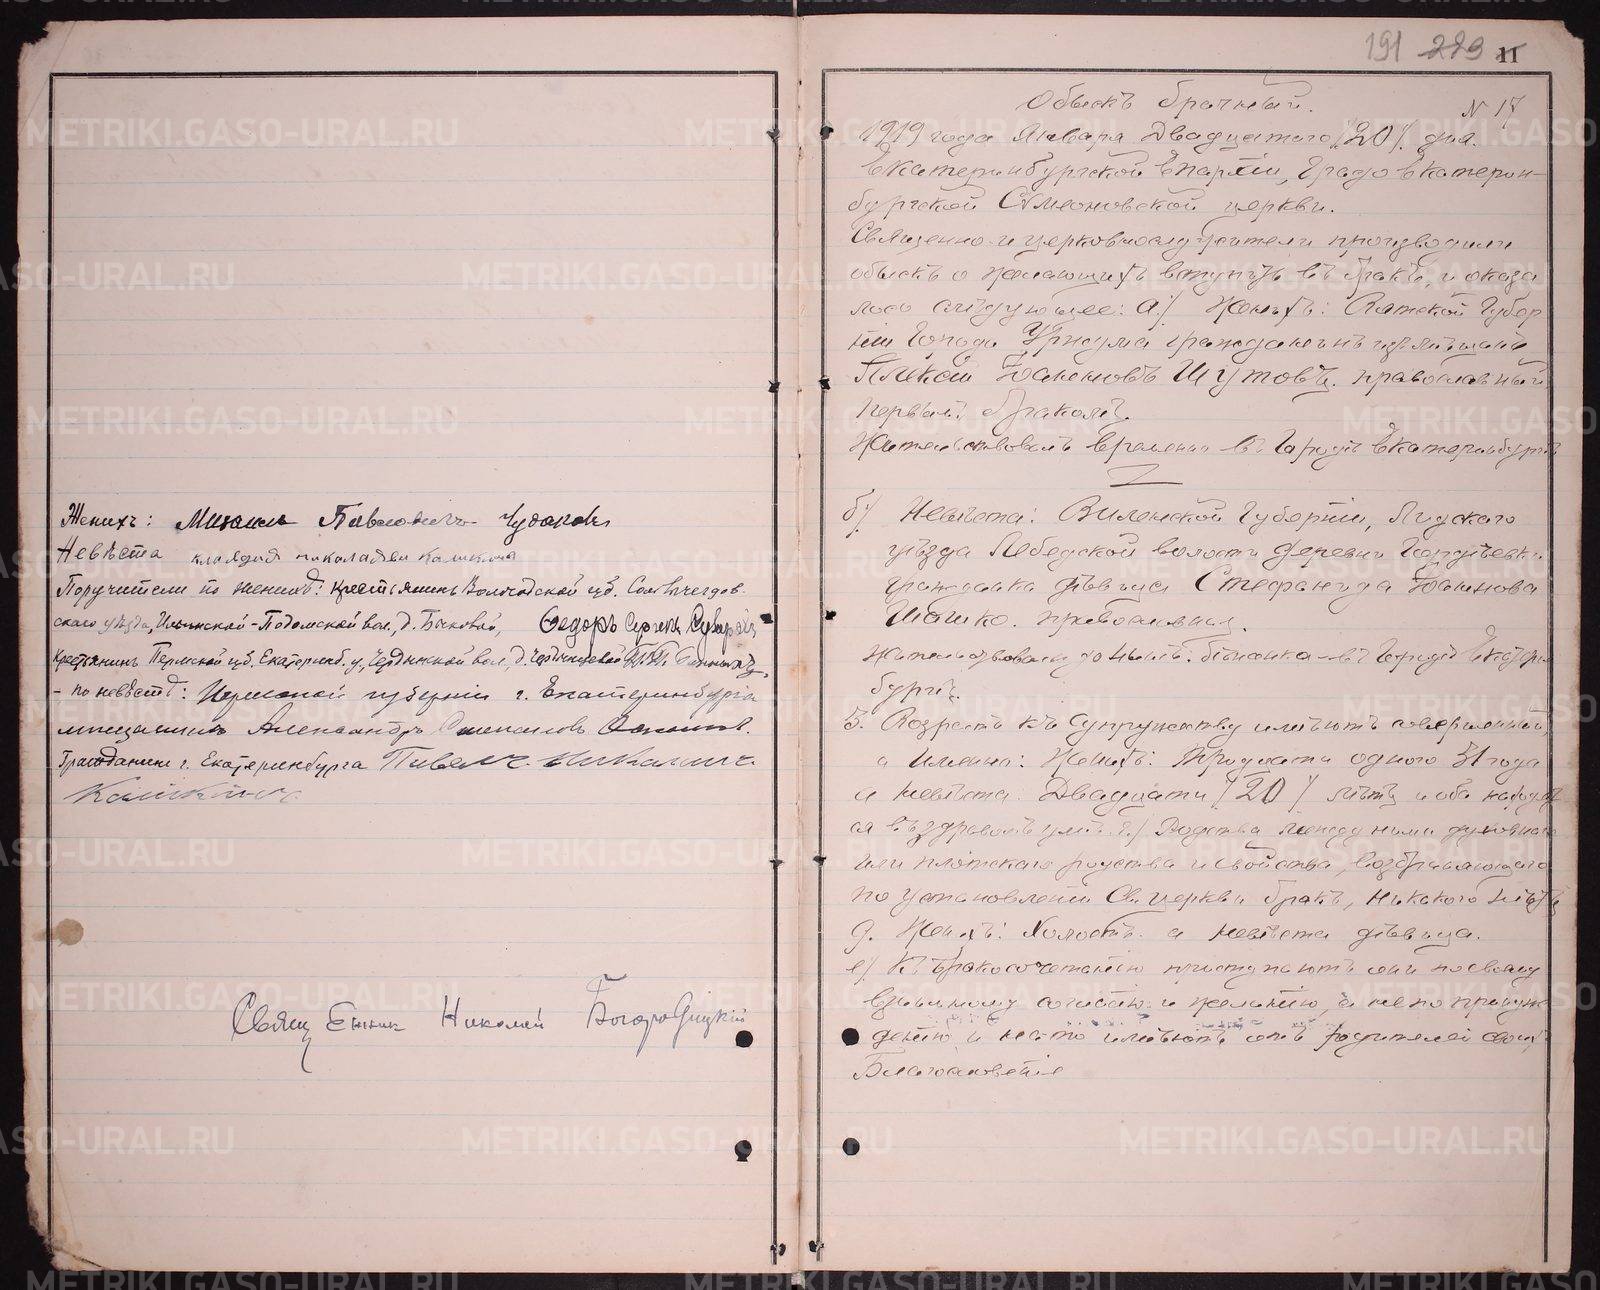 Женихъ: Михаилъ Павловичъ Чудаковъ
Невѣста клавдия николаева калинина
Поручители по женихѣ: крестьянинъ Вологодской губ. Сольвычегод-
скаго уѣзда, Ильинской-Подомской вол., д. Быковой, Ѳедоръ Сергѣевъ
Крестьянинъ Пермской губ. Екатеринб. у.
- по невѣстѣ: Пермской губернiи г. Екатеринбурга
мѣщанинъ Александръ Степановъ
Гражданинъ г. Екатеринбурга Павелъ
Священник Николай Богородицкій
191 229 11
Обыскъ брачный. N 17
1919 года Января Двадцатого /20/ дня.
Екатеринбургской Епархіи, Градо Екатерин-
бургской Симеоновской церкви.
Священно и церковнослужители производили
обыскъ о желающихъ вступить въ бракъ, и оказа
лось слѣдующее: а/ Женихъ: Вятской Губер
ніи Города Уржума гражданинъ изъ мѣщанъ
Алексѣй Іоанновъ Шутовъ. православный
первымъ бракомъ.
Жительствовалъ временно въ Городѣ Екатеринбургѣ
б/ Невѣста: Виленской Губерніи, Лидскаго
уѣзда Лебедской волости деревни
гражданка дѣвица Стефанида Іоаннова
Шашко. православная.
жительствовала до нынѣ: бѣженка въ Городѣ Екатерин
бургѣ.
3. Возрастъ къ супружеству имѣютъ совершенный
а именно: Женихъ: Тридцати одного 31 года
а невѣста: Двадцати /20/ лѣтъ и оба находят
ся въ здравомъ умѣ. г/ Родства между ними духовнаго
или плотскаго родства и свойства, возбраняющаго
по установленію Св. церкви бракъ, никакого нѣтъ
д. Женихъ: Холостъ а невѣста дѣвица.
е/ Къ бракосочетанію приступаютъ они по своему
взаимному согласію и желанію, а не по принуж
денію и на то имѣютъ отъ родителей своихъ
Благословеніе
METRIKI.GASO-URAL.RU